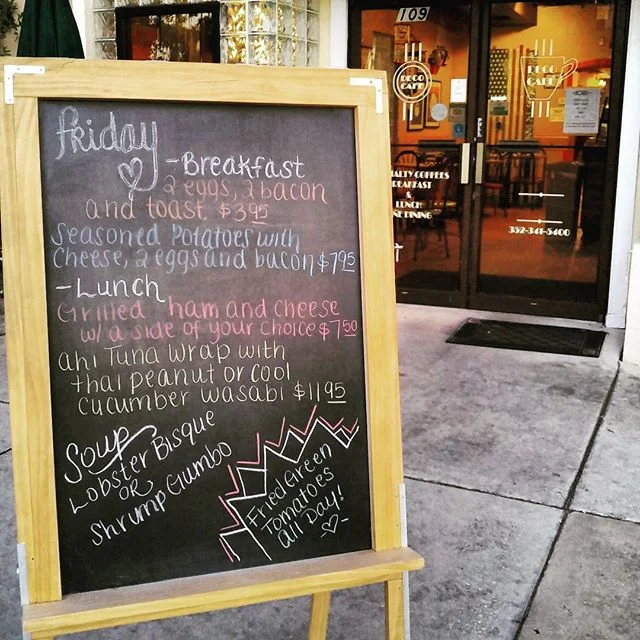 Friday
-Breakfast
2 eggs, 2 bacon
and toast $3.95
Seasoned Potatoes with
Cheese, 2 eggs and bacon $7.95
-Lunch
Grilled ham and cheese
w/a side of your choice $7.50
ahi Tuna Wrap with
thai peanut or cool
cucumber wasabi $11.95
Soup
Lobster Bisque
OR
Shrump Gumbo
Fried Green
Tomatoes
all Day!
109
DECO
CAFE
DECO
CAFE
ALTY COFFEES
REAKFAST
&
LUNCH
NE DINING
352-341-5400